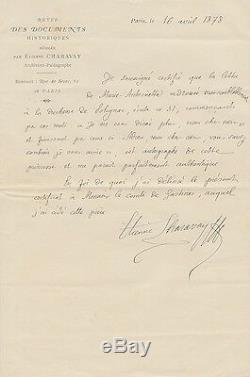 REVUE
DES DOCUMENTS
HISTORIQUES
RÉDIGÉE
PAR ÉTIENNE CHARAVAY
Archiviste-Paléographe
BUREAUX : RUE DE SEINE,
À PARIS
Paris, le 16 avril 1878
Je soussigné certifie que la lettre
de Marie-Antoinette adressée
à la duchesse de Polignac, commençant
par ces mots « Je ne
et finissant par
combien je vous aime », est autographe de cette
princesse et me paraît parfaitement authentique
En foi de quoi j'ai délivré le présent
certificat à Monsieur le comte de auquel
j'ai cédé cette pièce
Etienne Charavay